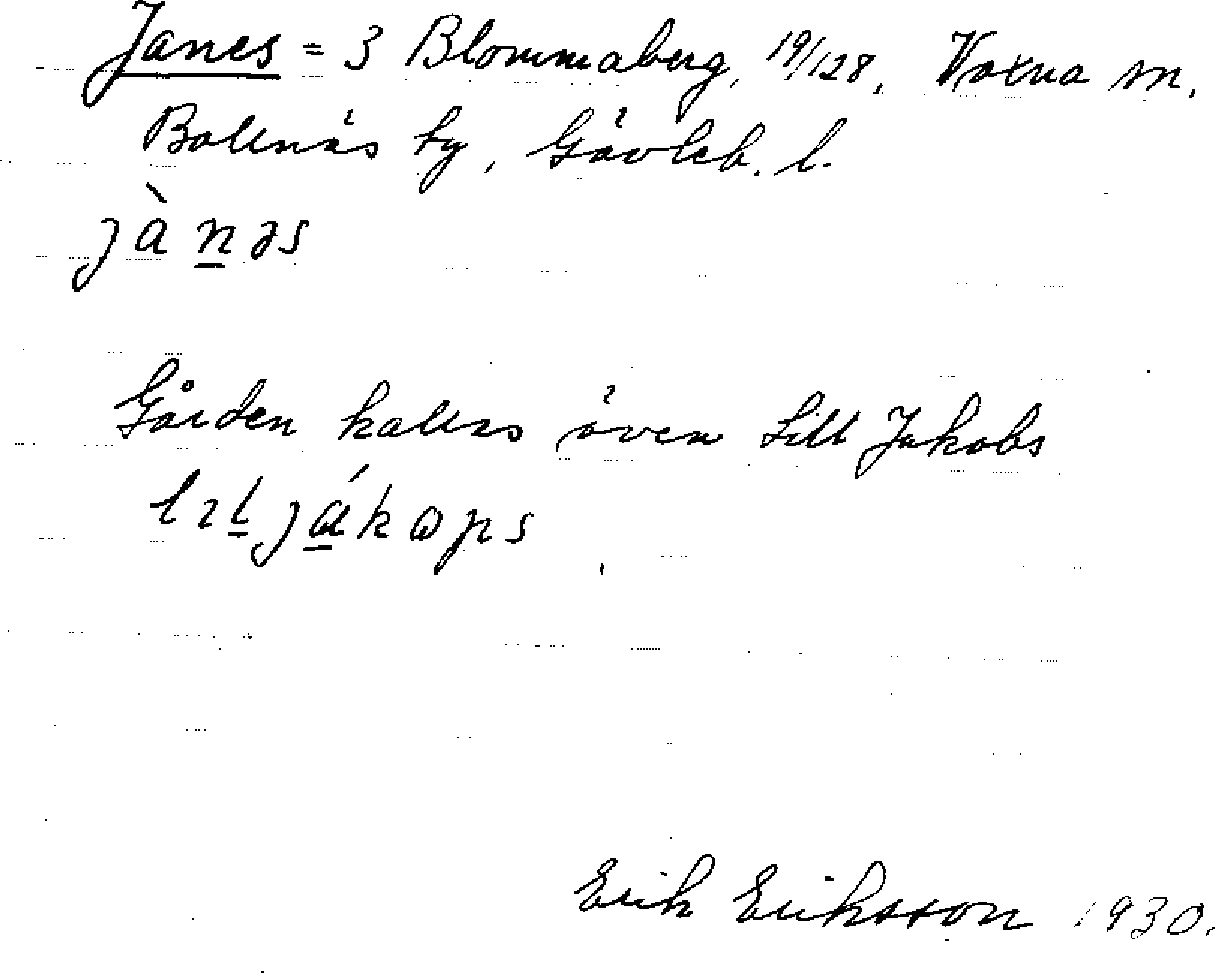 Janes = 3 Blommaberg, 19/128. Voxna sn.
Bollnäs ty, Gävleb. l.
jànəs
Gården kallas även Lill Jakobs
lɪtjákɷps
Erik Eriksson 1930.